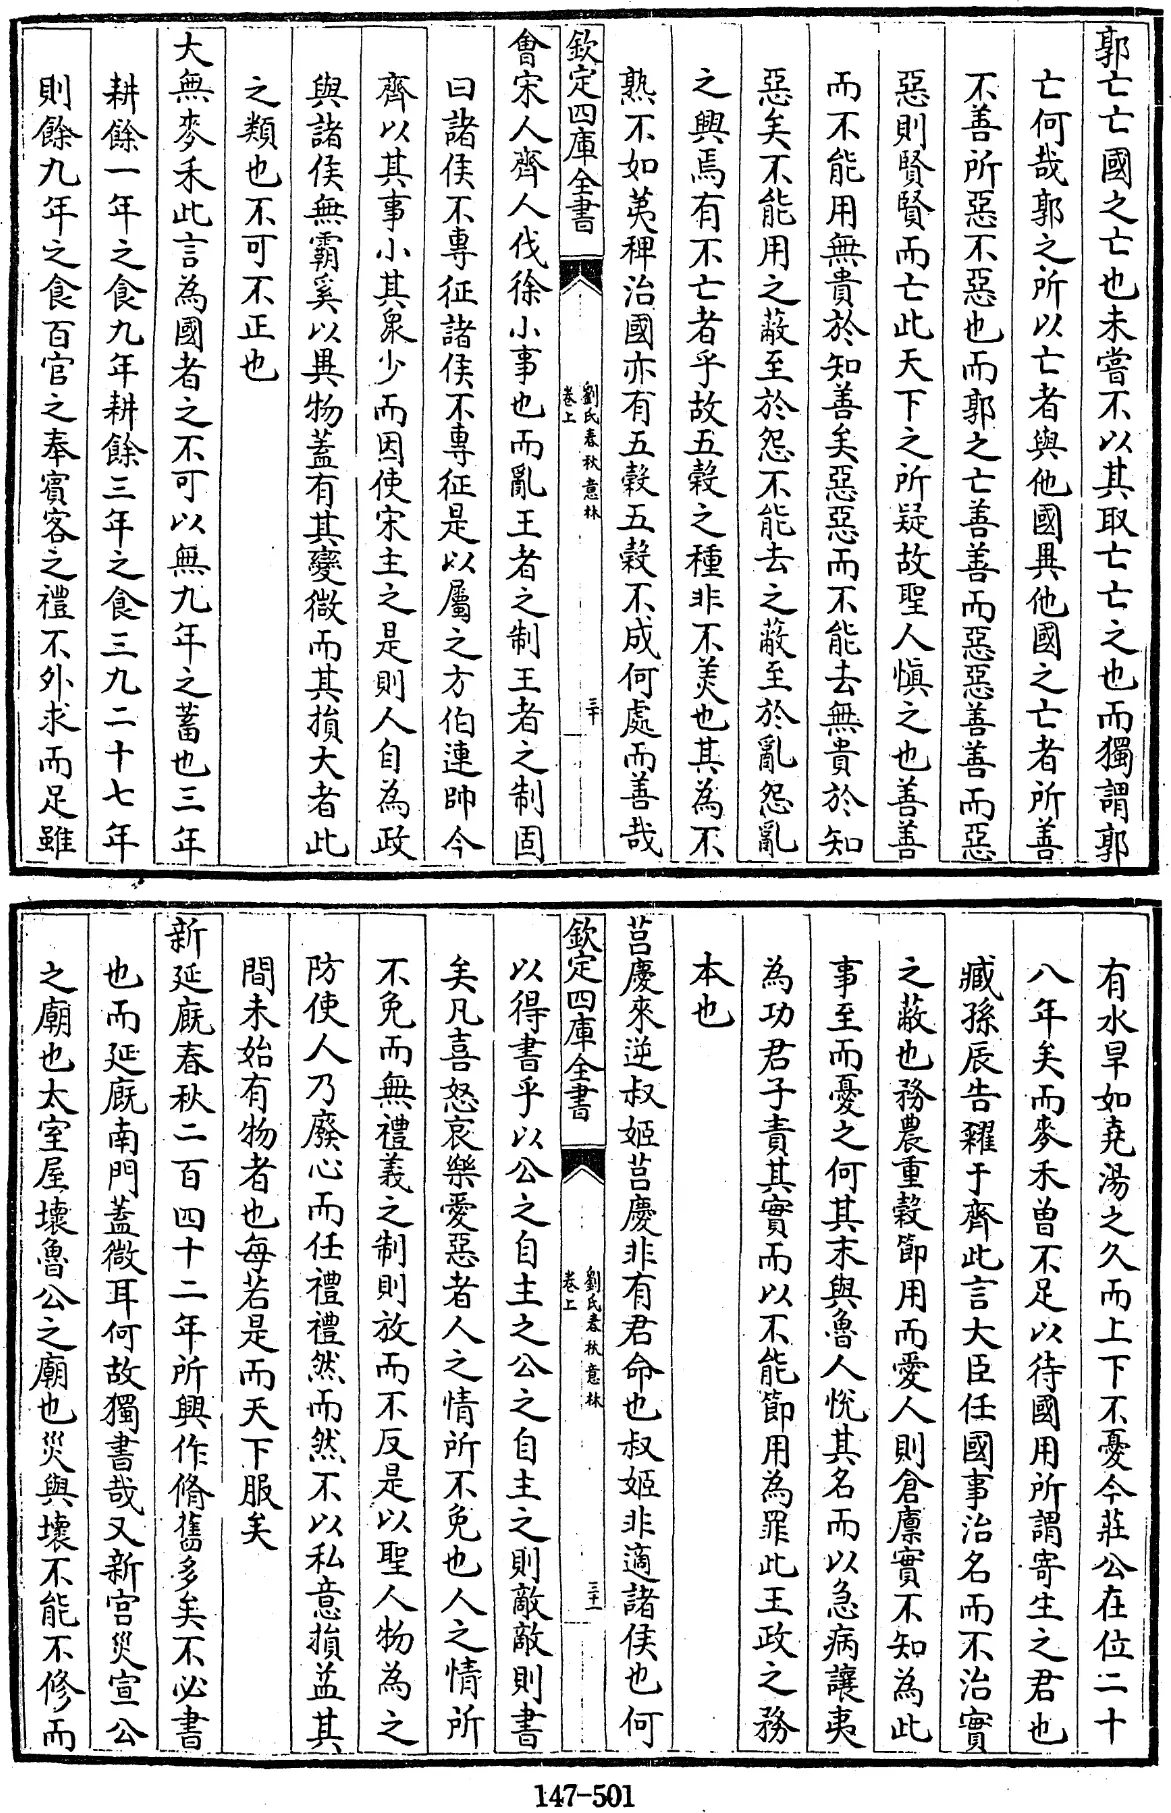 郭亡亡國之亡也未嘗不以其取亡亡之也而獨謂郭
亡何哉郭之所以亡者與他國異他國之亡者所善
不善所惡不惡也而郭之亡善善而惡惡善善而惡
惡則賢賢而亡此天下之所疑故聖人慎之也善善
而不能用無貴於知善矣惡惡而不能去無貴於知
惡矣不能用之蔽至於怨不能去之蔽至於亂怨亂
之興焉有不亡者乎故五穀之種非不美也其為不
熟不如荑稗治國亦有五穀五穀不成何處而善哉
欽定四庫全書
劉氏春秋意林
卷上
三十
會宋人齊人伐徐小事也而亂王者之制王者之制固
曰諸侯不專征諸侯不專征是以屬之方伯連帥今
齊以其事小其衆少而因使宋主之是則人自為政
與諸侯無霸奚以異物蓋有其變微而其損大者此
之類也不可不正也
大無麥禾此言為國者之不可以無九年之蓄也三年
耕餘一年之食九年耕餘三年之食三九二十七年
則餘九年之食百官之奉賓客之禮不外求而足雖
有水旱如堯湯之久而上下不憂今莊公在位二十
八年矣而麥禾曾不足以待國用所謂寄生之君也
臧孫辰告糴于齊此言大臣任國事治名而不治實
之蔽也務農重穀節用而愛人則倉廩實不知為此
事至而憂之何其末與魯人悅其名而以急病讓夷
為功君子責其實而以不能節用為罪此王政之務
本也
莒慶來逆叔姬莒慶非有君命也叔姬非適諸侯也何
欽定四庫全書
劉氏春秋意林
卷上
三十一
以得書乎以公之自主之公之自主之則敵敵則書
矣凡喜怒哀樂愛惡者人之情所不免也人之情所
不免而無禮義之制則放而不反是以聖人物為之
防使人乃廢心而任禮禮然而然不以私意損益其
間未始有物者也每若是而天下服矣
新延廐春秋二百四十二年所興作脩舊多矣不必書
也而延廐南門蓋微耳何故獨書哉又新宮災宣公
之廟也太室屋壞魯公之廟也災與壞不能不修而
147-501